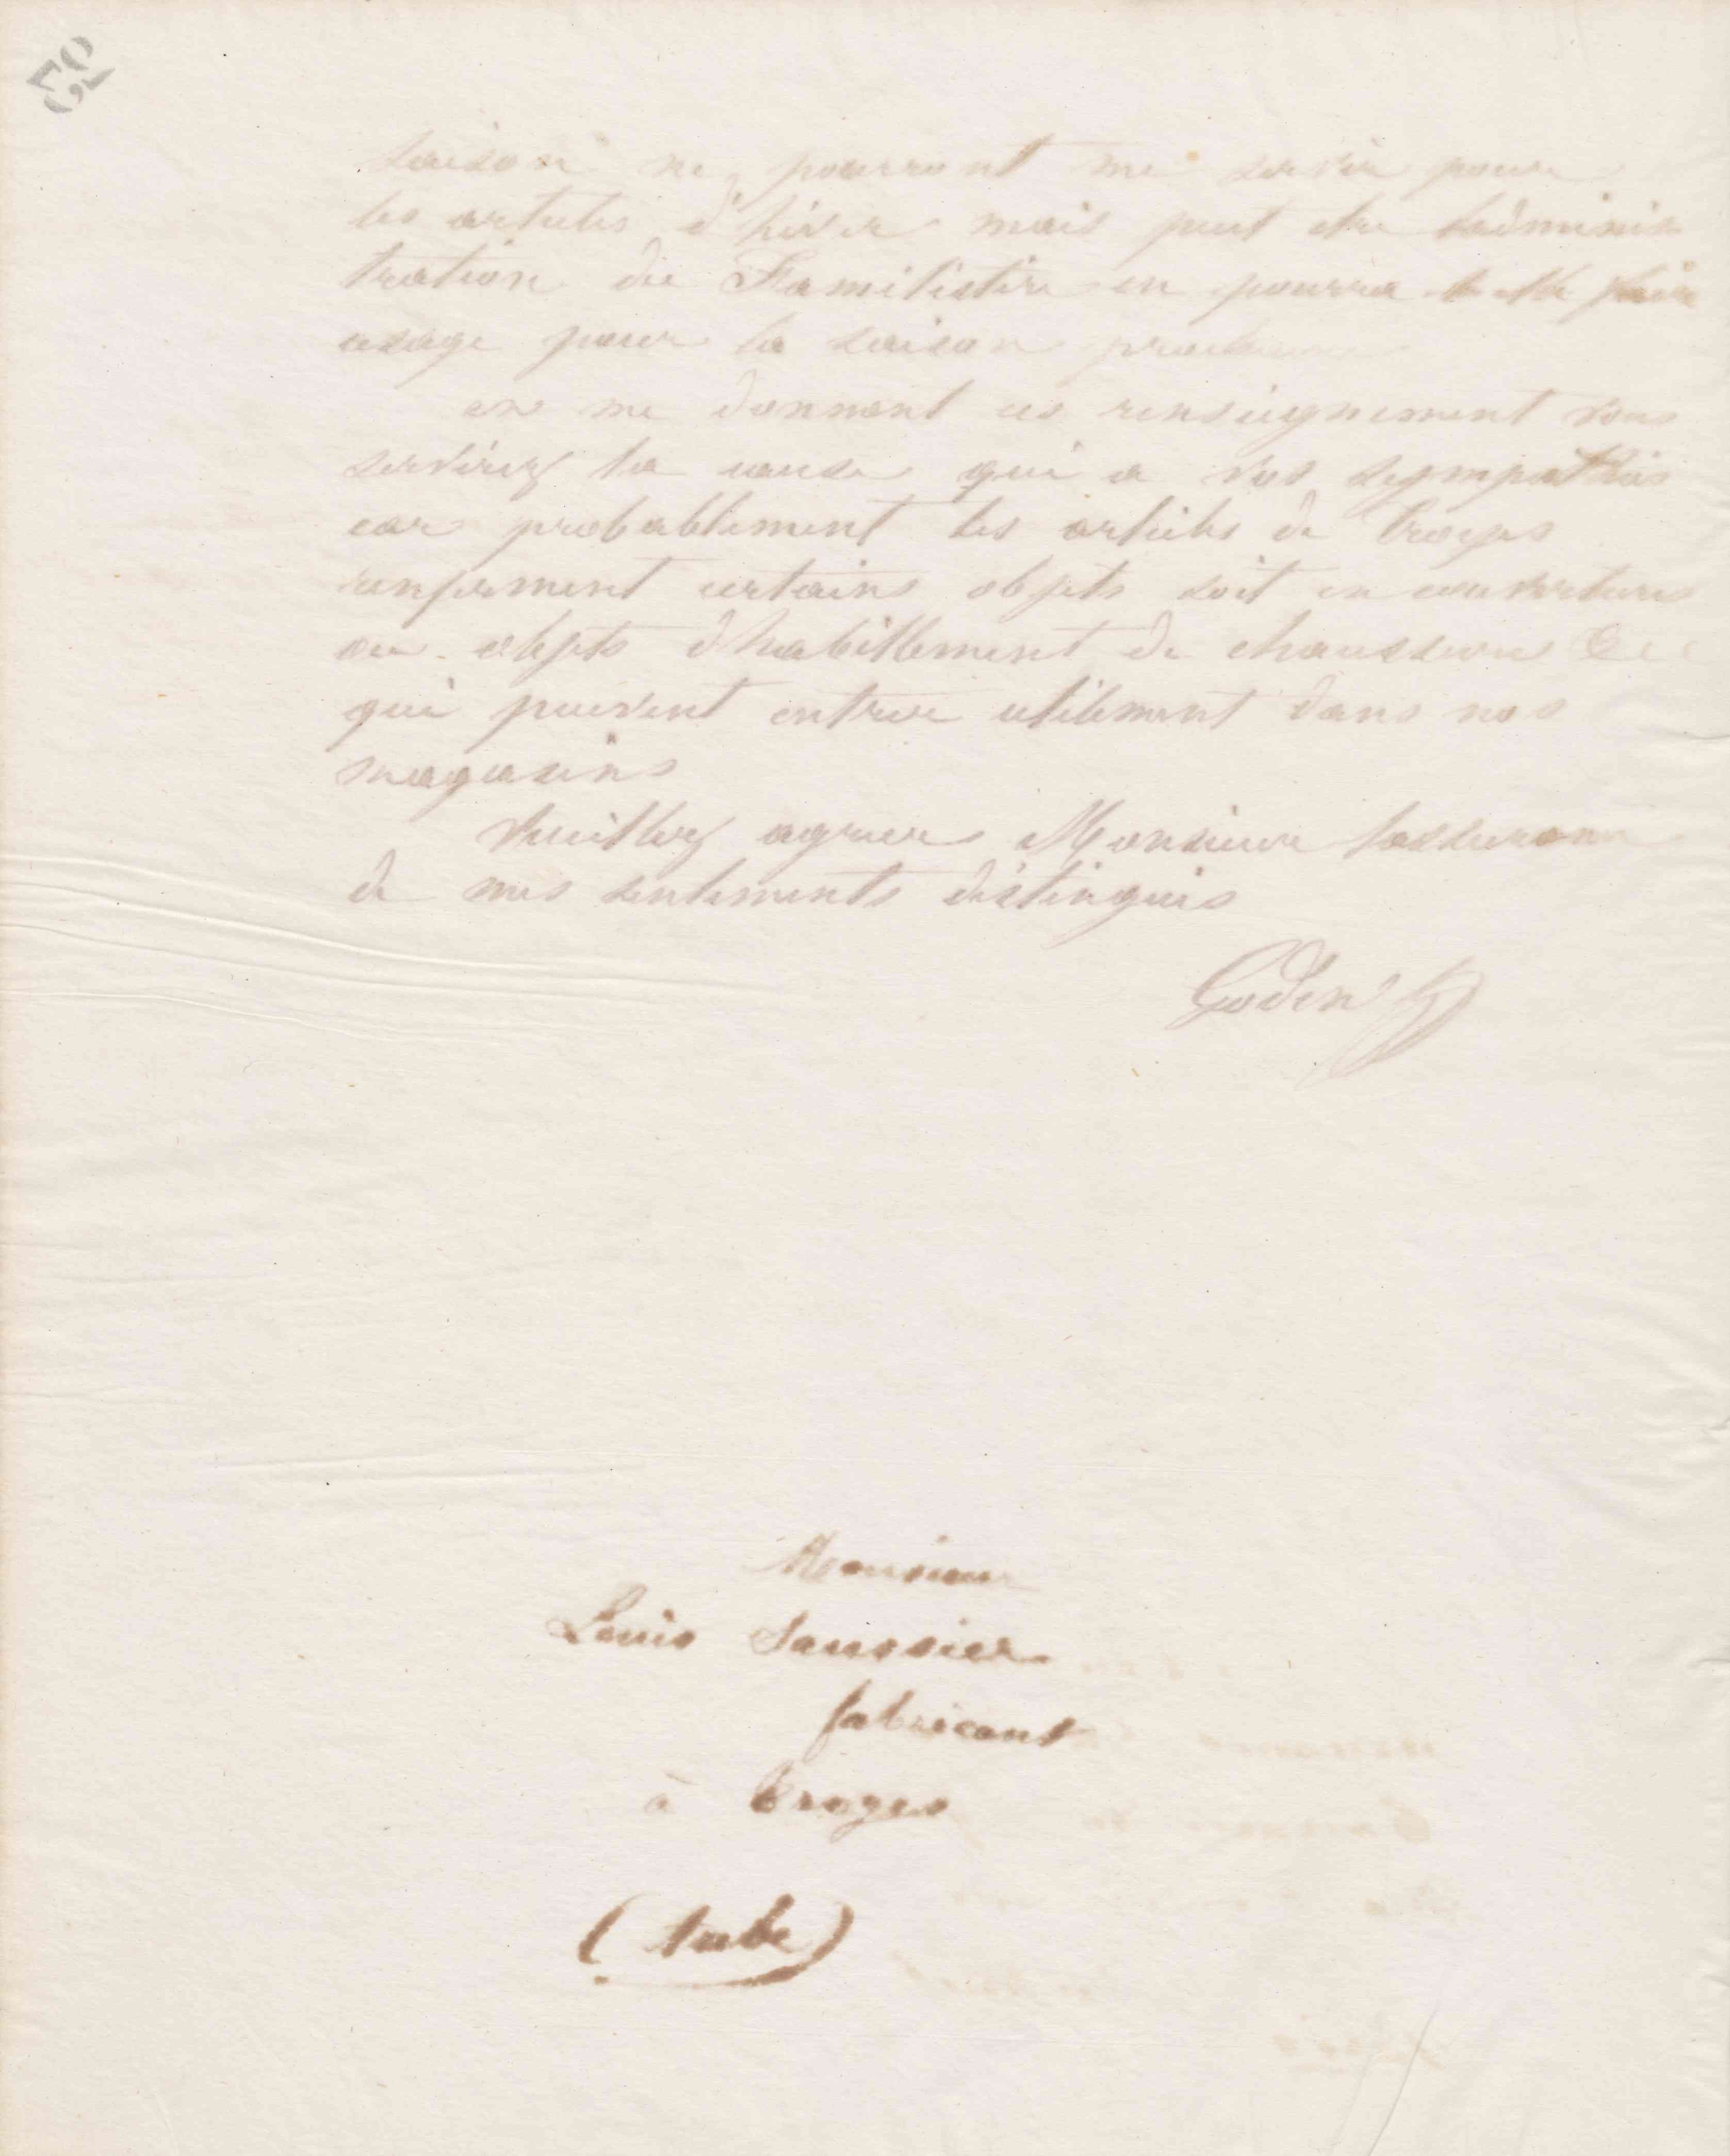 saison ne pourront me servir pour
les articles d'hiver mais peut etre l'adminis
tration du Familistère en pourra faire
usage pour la saison prochaine
en me donnant ces renseignement vous
servirez la cause qui a vos sympathies
car probablement les articles de Troyes
renferment certains objets soit en couvertures
ou objets d'habillement de chaussures &
qui puissent entrer utilement dans nos
magasins
Veuillez agréer Monsieur l'assurance
de mes sentiments distingués
Godin
Monsieur
Louis Saussier
fabricant
à Troyes
(Aube)